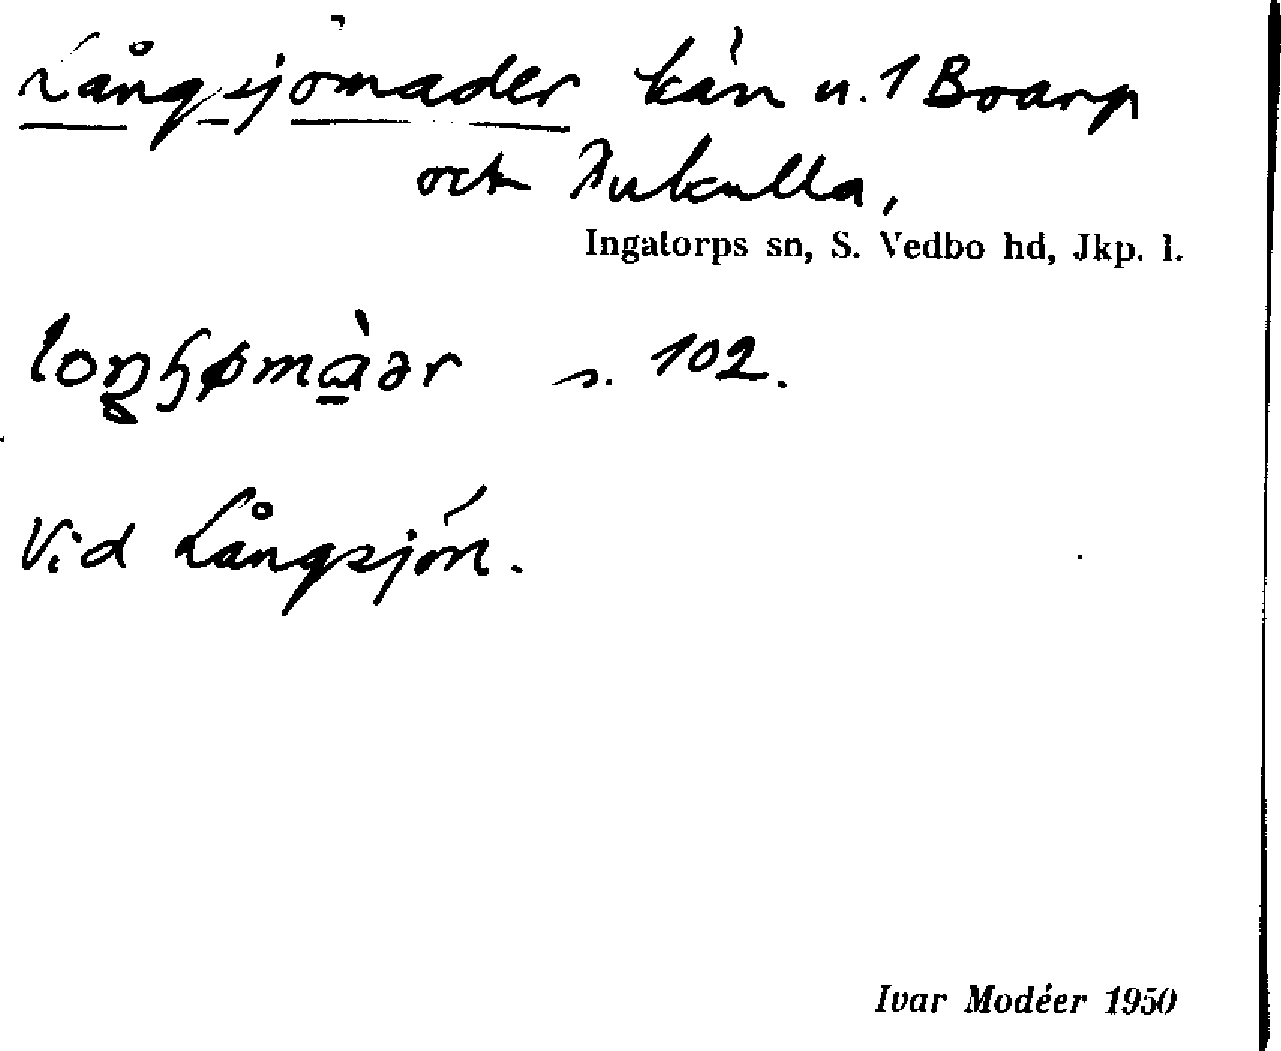 Långsjömader kärr u. 1 Boarp
och Aukulla,
Ingatorps sn, S. Vedbo hd, Jkp. l.
s. 102.
Vid Långsjön.
Ivar Modéer 1950